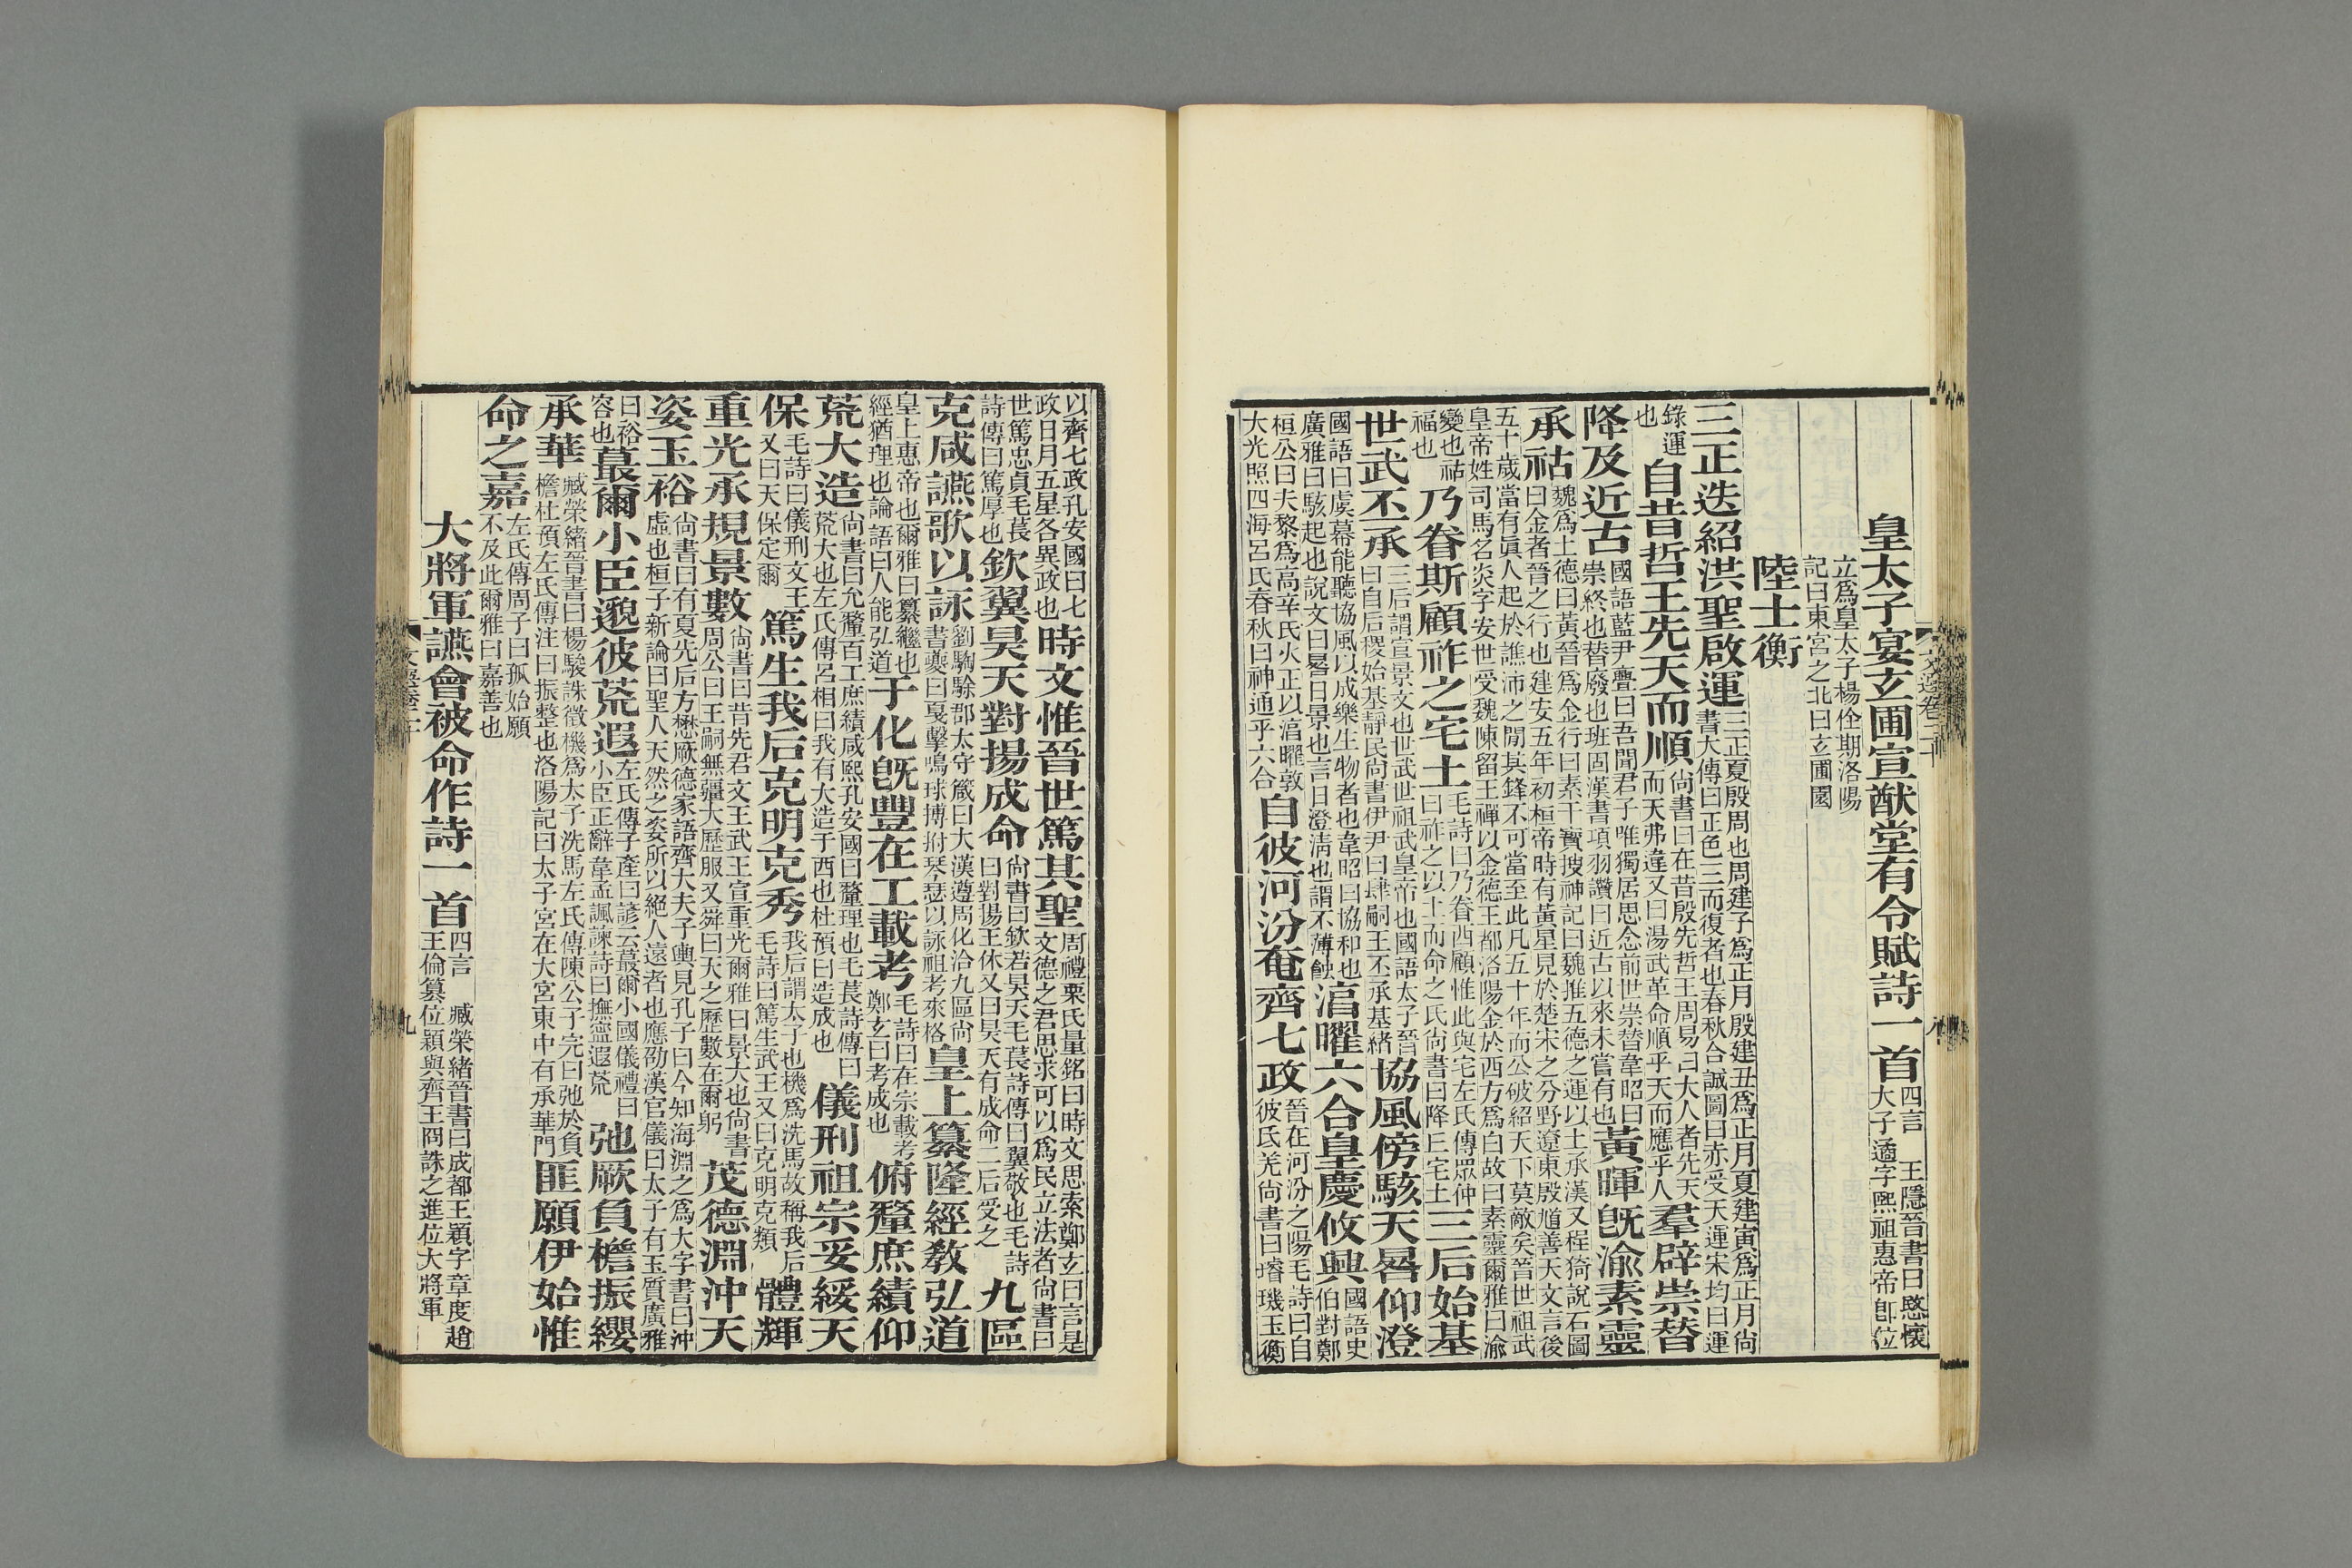 皇太子宴玄圃宣猷堂有令賦詩一首四言　王隱晉書曰愍懷
太子遹字熙祖惠帝卽位
立爲皇太子楊佺期洛陽
記曰東宮之北曰玄圃園
陸士衡
三正迭紹洪聖啟運三正夏殷周也周建子爲正月殷建丑爲正月夏建寅爲正月尚
書大傳曰正色三而復者也春秋合誠圖曰赤受天運宋均曰運
錄運
也
自昔哲王先天而順尚書曰在昔殷先哲王周易曰大人者先天
而天弗違又曰湯武革命順乎天而應乎人羣辟崇替
降及近古國語藍尹亹曰吾聞君子唯獨居思念前世崇替韋昭曰
崇終也替廢也班固漢書項羽讚曰近古以來未嘗有也黃暉旣渝素靈
承祜魏爲土德曰黃晉爲金行曰素干寶搜神記曰魏推五德之運以土承漢又程猗說石圖
曰金者晉之行也建安五年初桓帝時有黃星見於楚宋之分野遼東殷馗善天文言後
五十歲當有眞人起於譙沛之閒其鋒不可當至此凡五十年而公破紹天下莫敵矣晉世祖武
皇帝姓司馬名炎字安世受魏陳留王禪以金德王都洛陽金於西方爲白故曰素靈爾雅曰渝
變也祜
福也
乃眷斯顧祚之宅土毛詩曰乃眷西顧惟此與宅左氏傳眾仲
曰祚之以土而命之氏尚書曰降丘宅土三后始基
世武丕承三后謂宣景文也世武世祖武皇帝也國語太子晉
曰自后稷始基靜民尚書伊尹曰肆嗣王丕承基緒協風傍駭天晷仰澄
國語曰虞幕能聽協風以成樂生物者也韋昭曰協和也
廣雅曰駭起也說文曰晷日景也言日澄淸也謂不薄蝕淯曜六合皇慶攸興國語史
伯對鄭
桓公曰夫黎爲高辛氏火正以淯曜敦
大光照四海呂氏春秋曰神通乎六合
自彼河汾奄齊七政晉在河汾之陽毛詩曰自
彼氐羌尚書曰璿璣玉衡
以齊七政孔安國曰七
政日月五星各異政也時文惟晉世篤其聖周禮栗氏量銘曰時文思索鄭玄曰言是
文德之君思求可以爲民立法者尚書曰
世篤忠貞毛萇
詩傳曰篤厚也欽翼昊天對揚成命尚書曰欽若昊天毛萇詩傳曰翼敬也毛詩
曰對揚王休又曰昊天有成命二后受之九區
克咸讌歌以詠劉騊駼郡太守箴曰大漢遵周化洽九區尚
書夔曰戛擊鳴球搏拊琴瑟以詠祖考來格皇上纂隆經敎弘道
皇上惠帝也爾雅曰纂繼也
經猶理也論語曰人能弘道于化旣豐在工載考毛詩曰在宗載考
鄭玄曰考成也俯釐庶績仰
荒大造尚書曰允釐百工庶績咸熙孔安國曰釐理也毛萇詩傳曰
荒大也左氏傳呂相曰我有大造于西也杜預曰造成也儀刑祖宗妥綏天
保毛詩曰儀刑文王
又曰天保定爾篤生我后克明克秀我后謂太子也機爲洗馬故稱我后
毛詩曰篤生武王又曰克明克類體輝
重光承規景數尚書曰昔先君文王武王宣重光爾雅曰景大也尚書
周公曰王嗣無疆大歷服又舜曰天之歷數在爾躬茂德淵沖天
姿玉裕尚書曰有夏先后方懋厥德家語齊大夫子輿見孔子曰今知海淵之爲大字書曰沖
虛也桓子新論曰聖人天然之姿所以絕人遠者也應劭漢官儀曰太子有玉質廣雅
曰裕
容也蕞爾小臣邈彼荒遐左氏傳子產曰諺云蕞爾小國儀禮曰
小臣正辭韋孟諷諫詩曰撫寧遐荒弛厥負檐振纓
承華臧榮緖晉書曰楊駿誅徵機爲太子洗馬左氏傳陳公子完曰弛於負
檐杜預左氏傳注曰振整也洛陽記曰太子宮在大宮東中有承華門匪願伊始惟
命之嘉左氏傳周子曰孤始願
不及此爾雅曰嘉善也
大將軍讌會被命作詩一首四言　臧榮緖晉書曰成都王穎字章度趙
王倫篡位穎與齊王冏誅之進位大將軍
文選卷二十
九